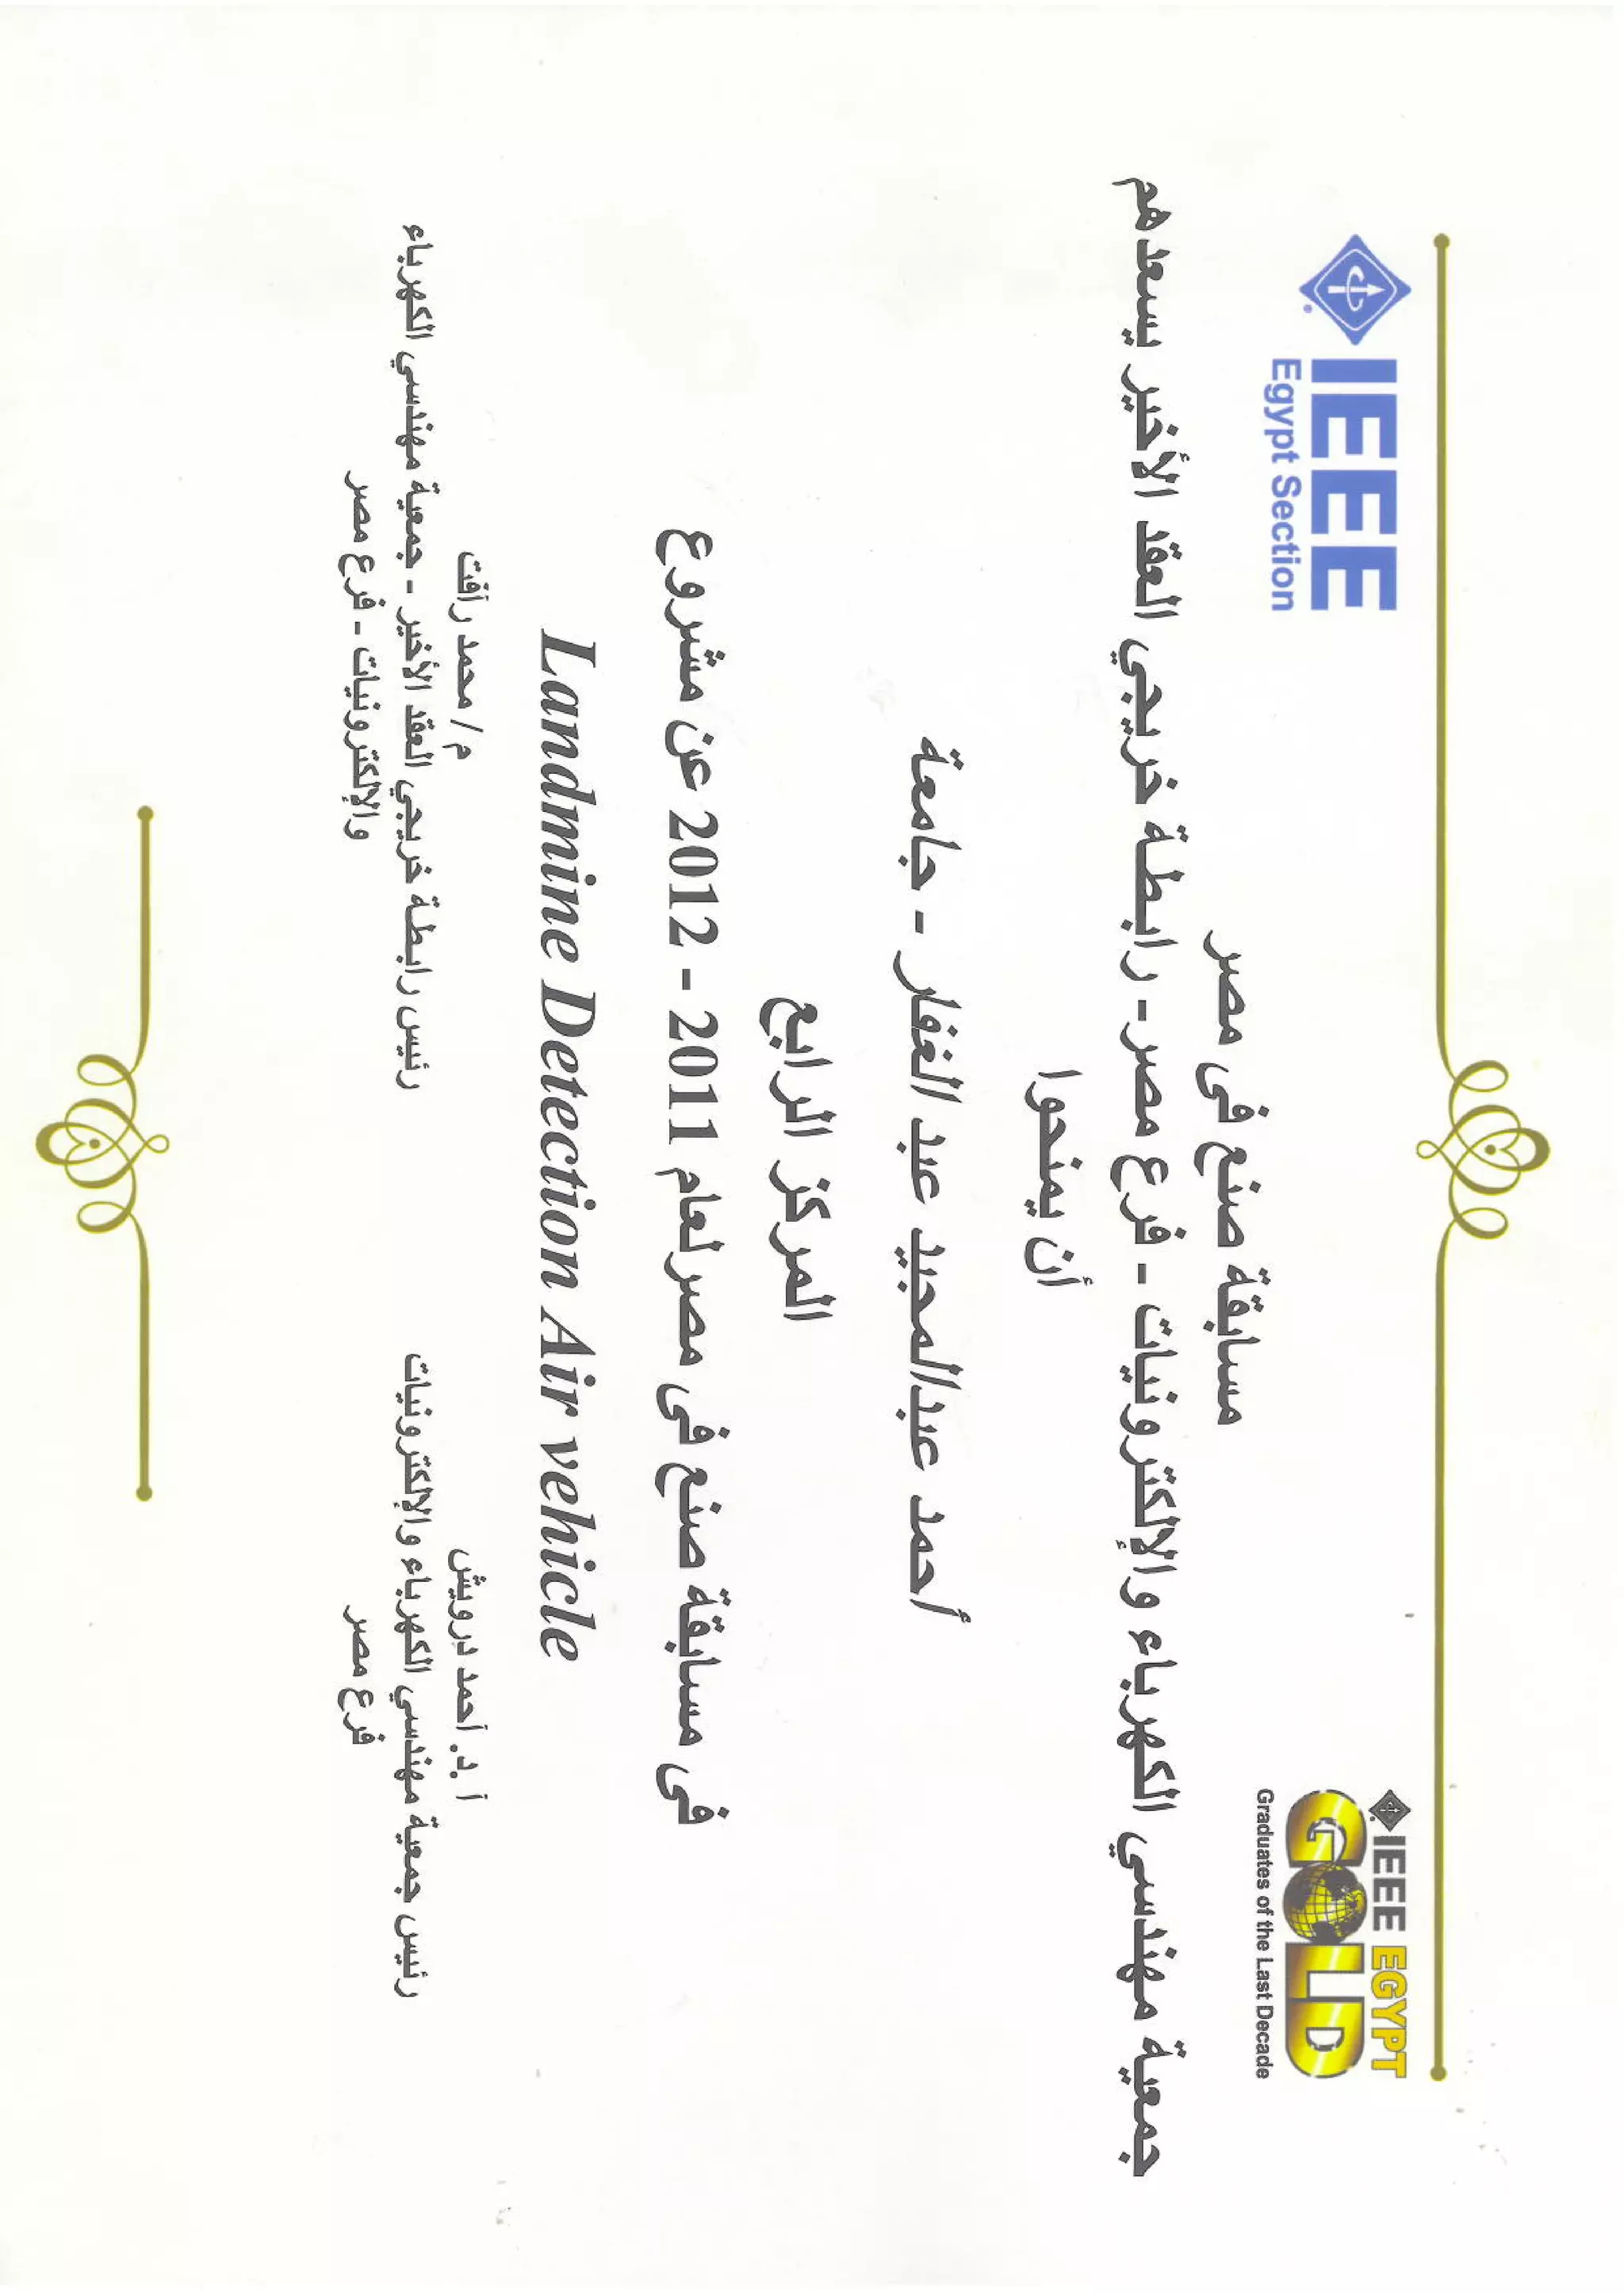 IEEE
Egypt Section
IEEE EGYPT
GOLD
Graduates of the Last Decade
مسابقة صنع فى مصر
جمعية مهندسي الكهرباء والإلكترونيات - فرع مصر - رابطة خريجي العقد الأخير يسعدهم
أن يمنحوا
أحمد عبدالمجيد عبد الغفار - جامعة
المركز الرابع
فى مسابقة صنع فى مصر لعام 2011 - 2012 عن مشروع
Landmine Detection Air vehicle
أ .د. أحمد درويش
رئيس جمعية مهندسي الكهرباء والإلكترونيات
فرع مصر
م / محمد رأفت
رئيس رابطة خريجي العقد الأخير - جمعية مهندسي الكهرباء
والإلكترونيات - فرع مصر